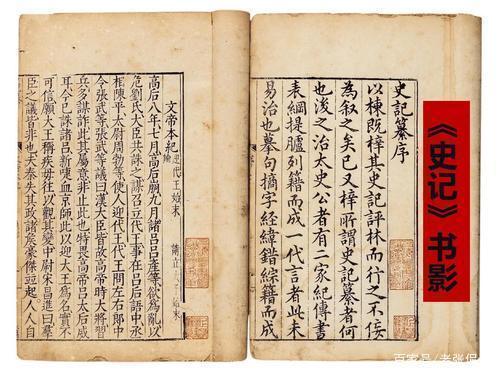 《史记》书影
史記纂序
以棟既梓其史記評林而行之不佞
為叙之矣已又梓所謂史記纂者何
也後之治太史公者有二家紀傳書
表綱提臚列籍而成一代言者此未
易治也摹句摘字經緯錯綜籍而成
文帝本紀 迎代王始末
高后八年七月高后崩九月諸呂呂產等欲為亂以
危劉氏大臣共誅之謀召立代王事在呂后語中丞
相陳平太尉周勃等使人迎代王代王問左右郎中
令張武等張武等議曰漢大臣皆故高帝時大將習
兵多謀詐此其屬意非止此也特畏高帝呂太后威
耳今已誅諸呂新喋血京師此以迎大王為名實不
可信願大王稱疾毋往以觀其變中尉宋昌進曰羣
臣之議皆非也夫秦失其政諸侯豪傑並起人人自
百家号/老张侃